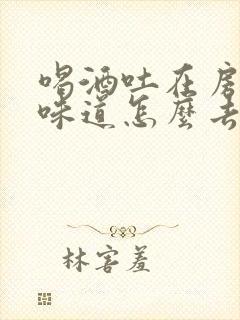 喝酒吐在房
味道怎麼去
林害羞